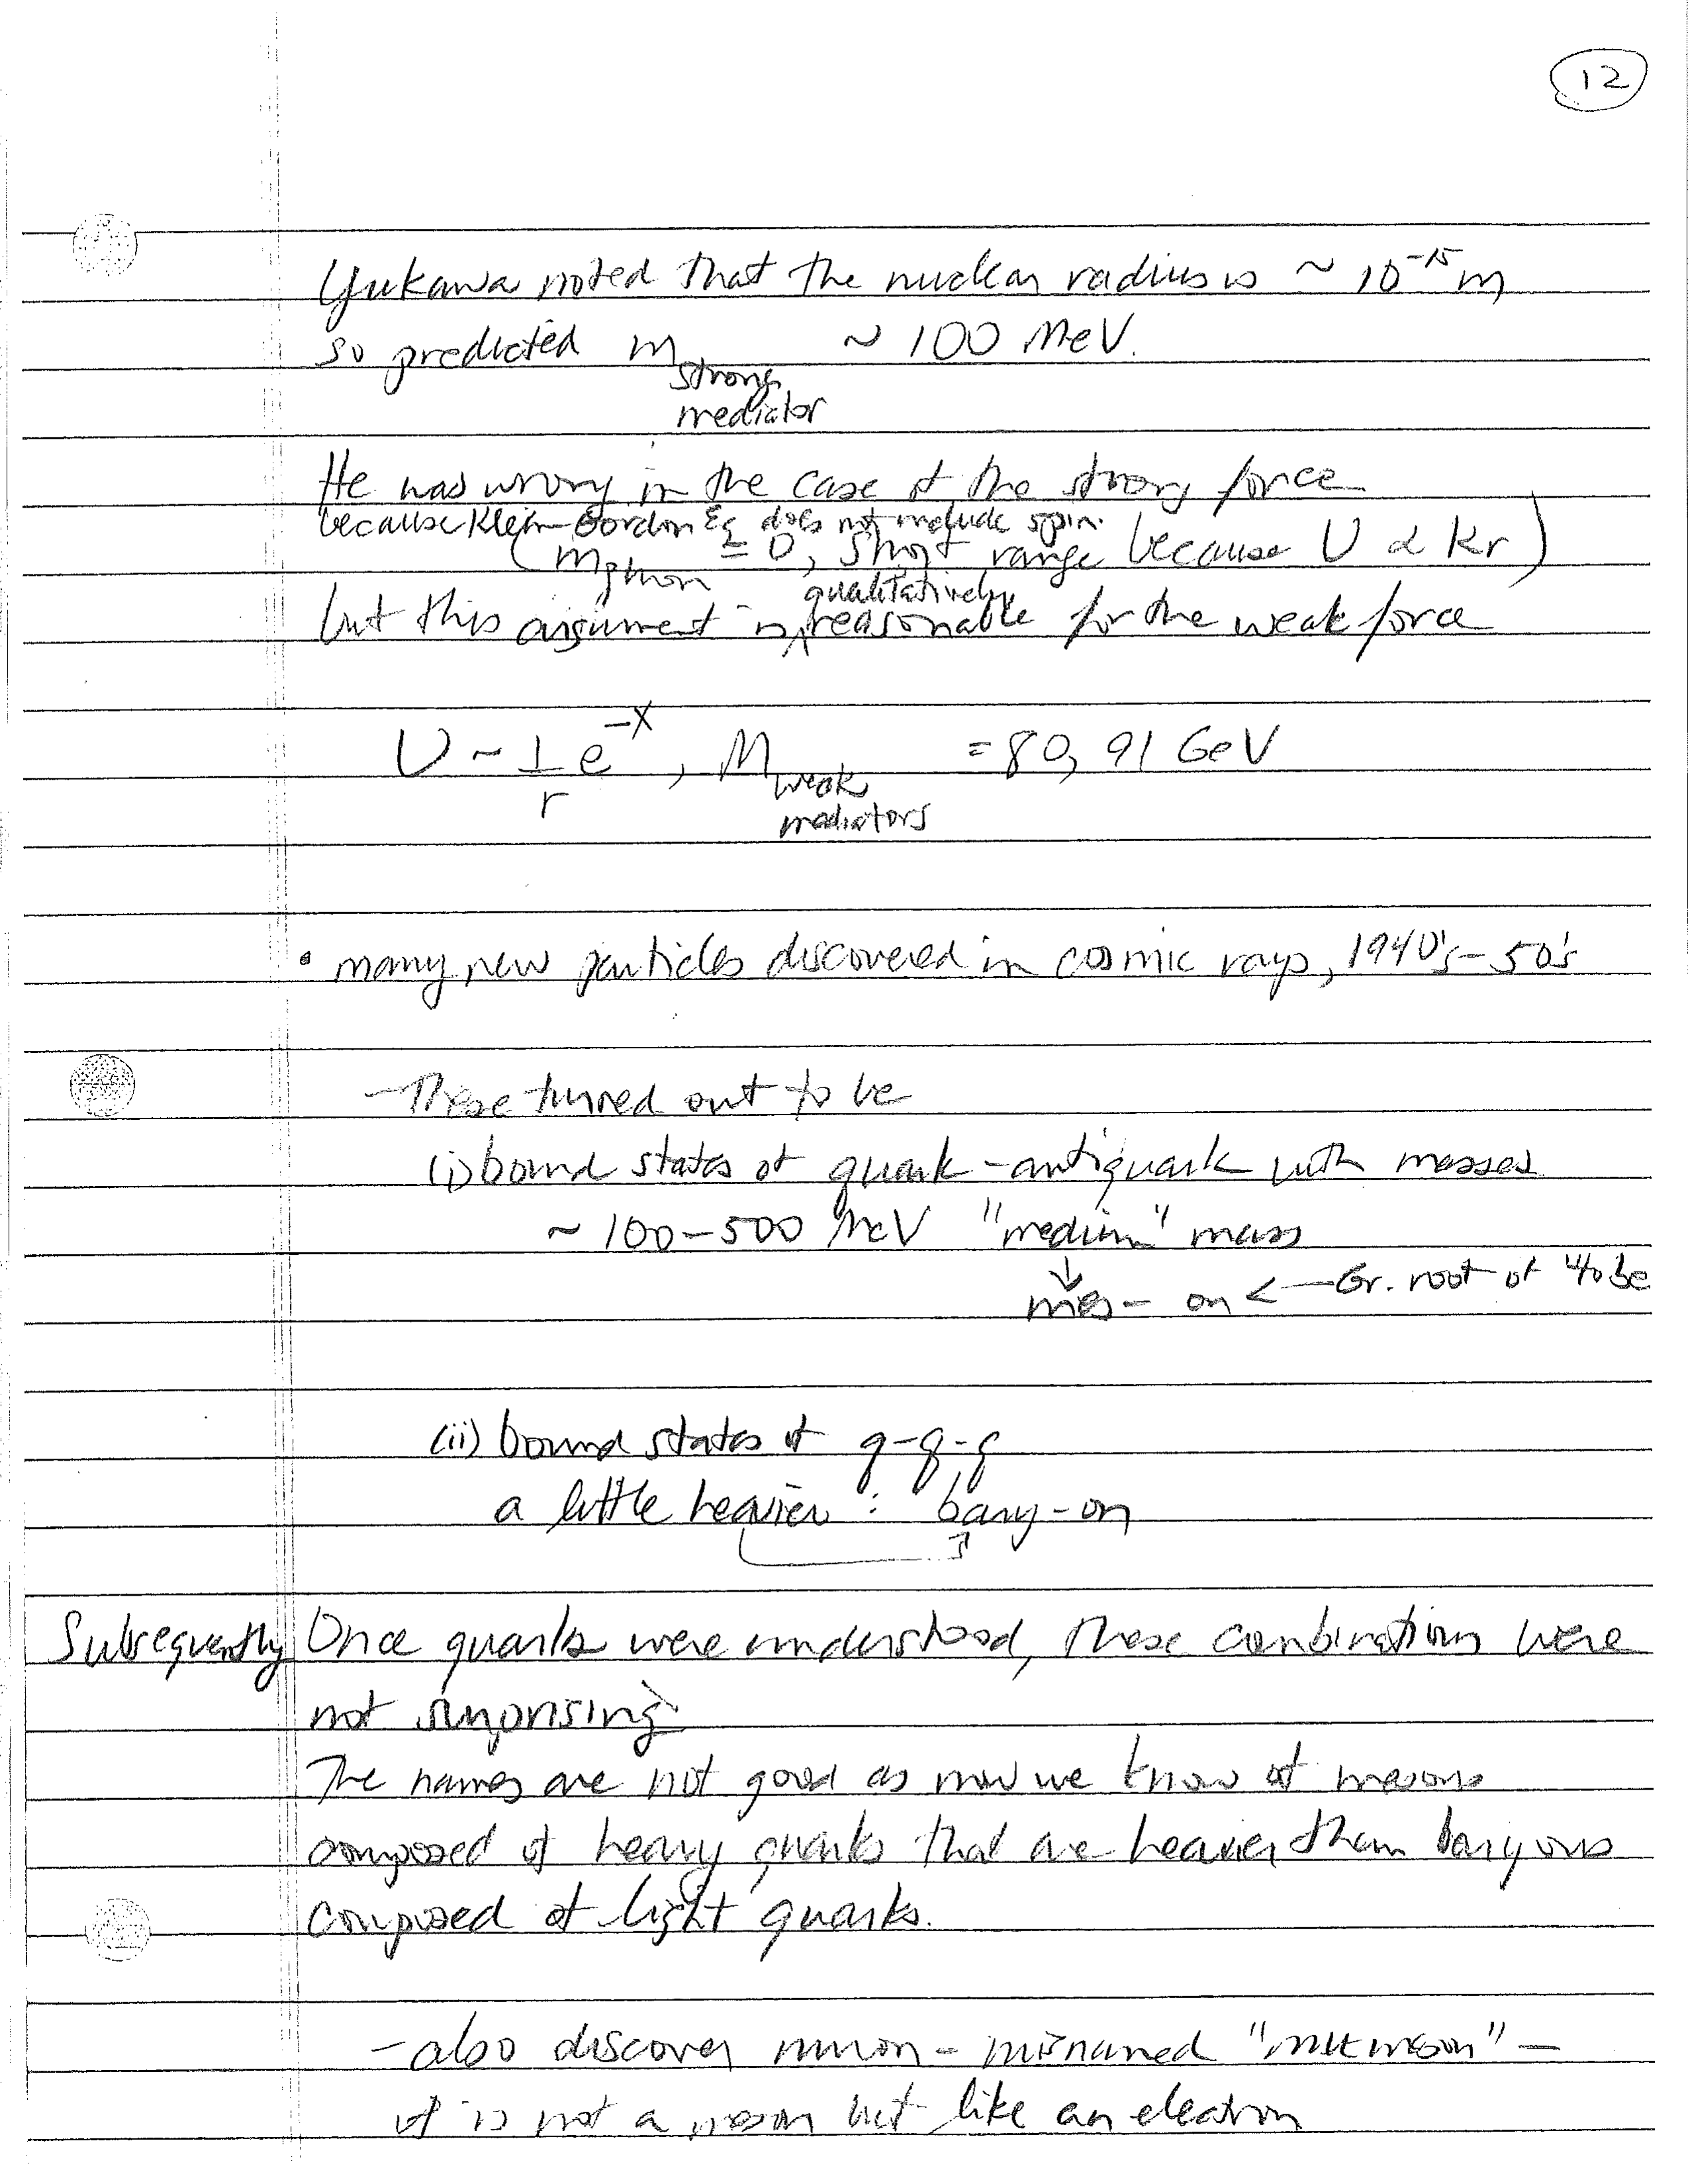 12
Yukawa noted that the nuclear radius is ~ 10⁻¹⁵ m
so predicted m strong mediator ~ 100 MeV.
He was wrong in the case of the strong force
because Klein-Gordon Eq does not include spin.
(m gluon = 0, short range because U ∝ kr)
qualitatively
but this argument is ^ reasonable for the weak force
U ~ 1/r e^-x , M weak mediators = 80, 91 GeV
• many new particles discovered in cosmic rays, 1940's-50's
- These turned out to be
(i) bound states of quark-antiquark with masses
~ 100-500 MeV "medium" mass
↓
mes - on <— Gr. root of "to be
(ii) bound states of q-q-q
a little heavier : bary-on
Subsequently Once quarks were understood, these combinations were
not surprising.
The names are not good as now we know of mesons
composed of heavy quarks that are heavier than baryons
composed of light quarks.
- also discover muon - misnamed "mu meson" -
it is not a meson but like an electron